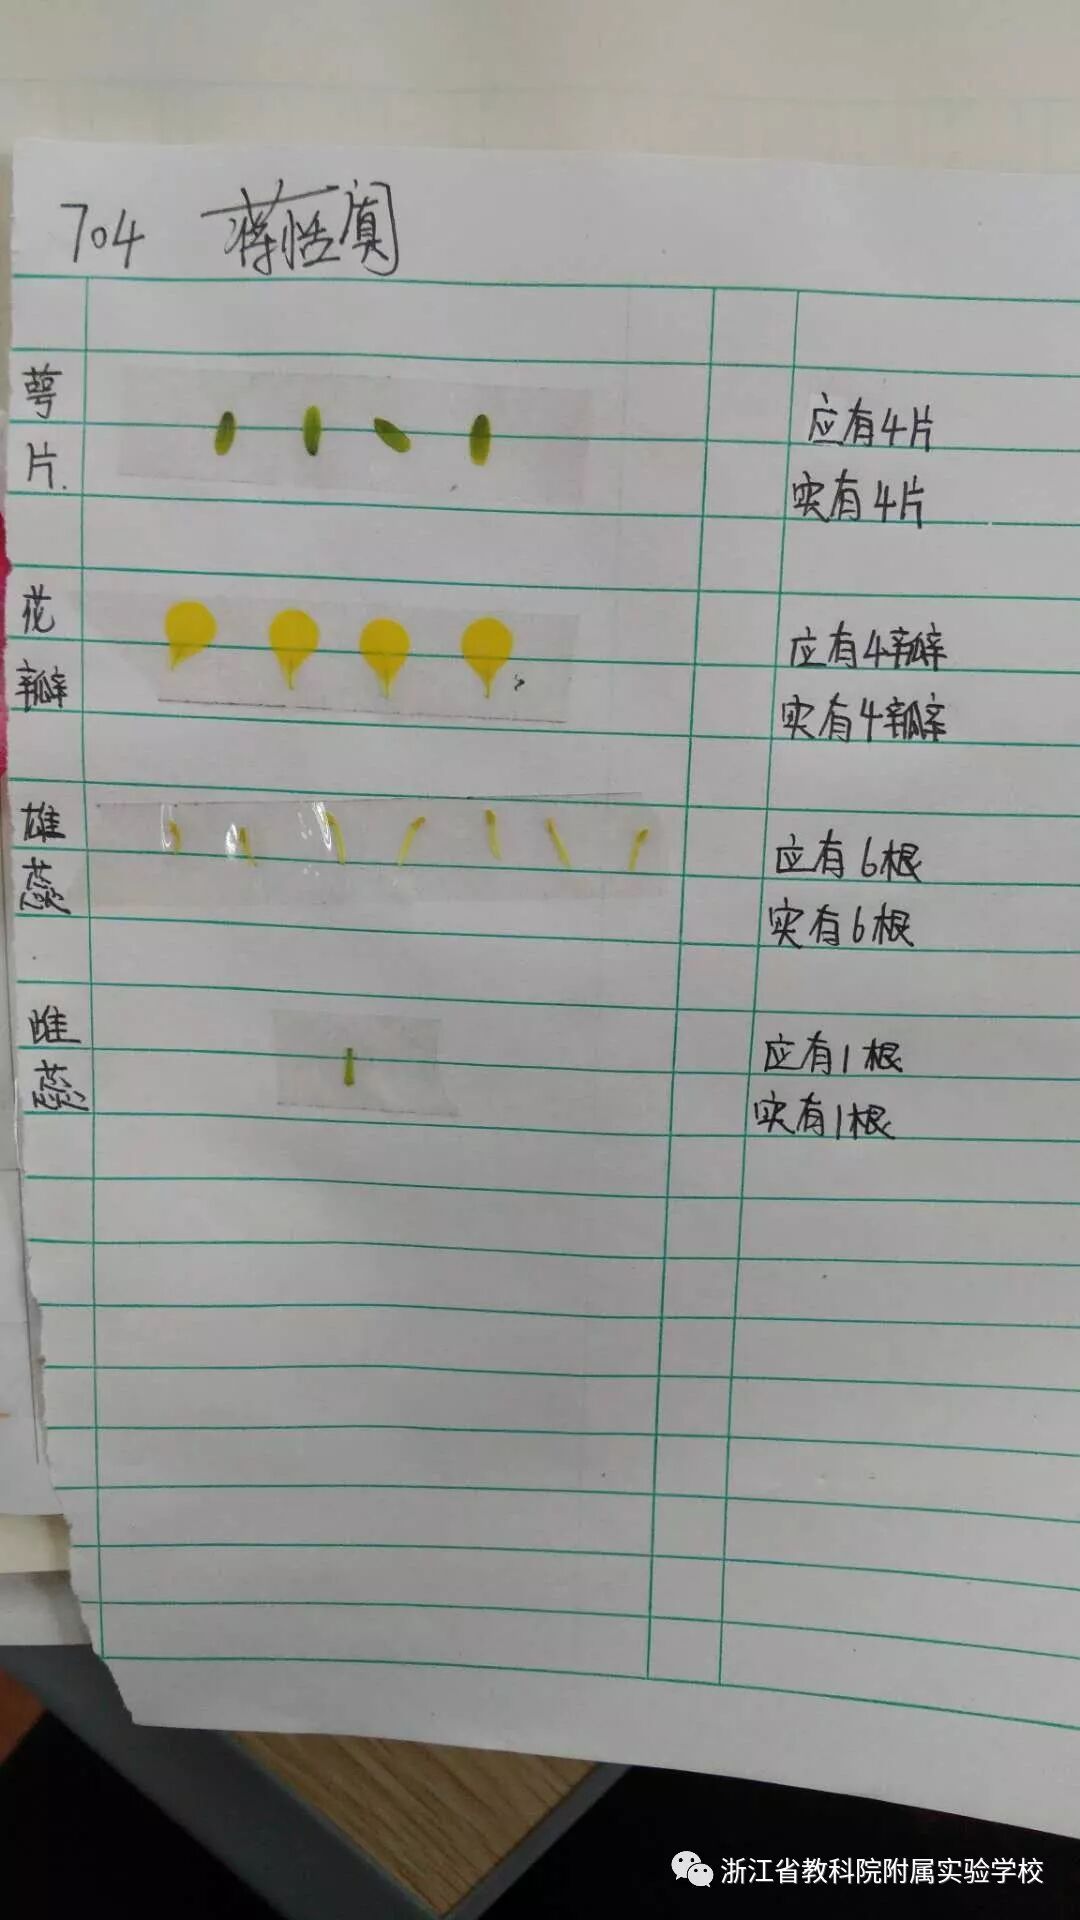 704 蒋恬
萼片.
应有4片
实有4片
花瓣
应有4瓣
实有4瓣
雄蕊
应有6根
实有6根
雌蕊
应有1根
实有1根
浙江省教科院附属实验学校